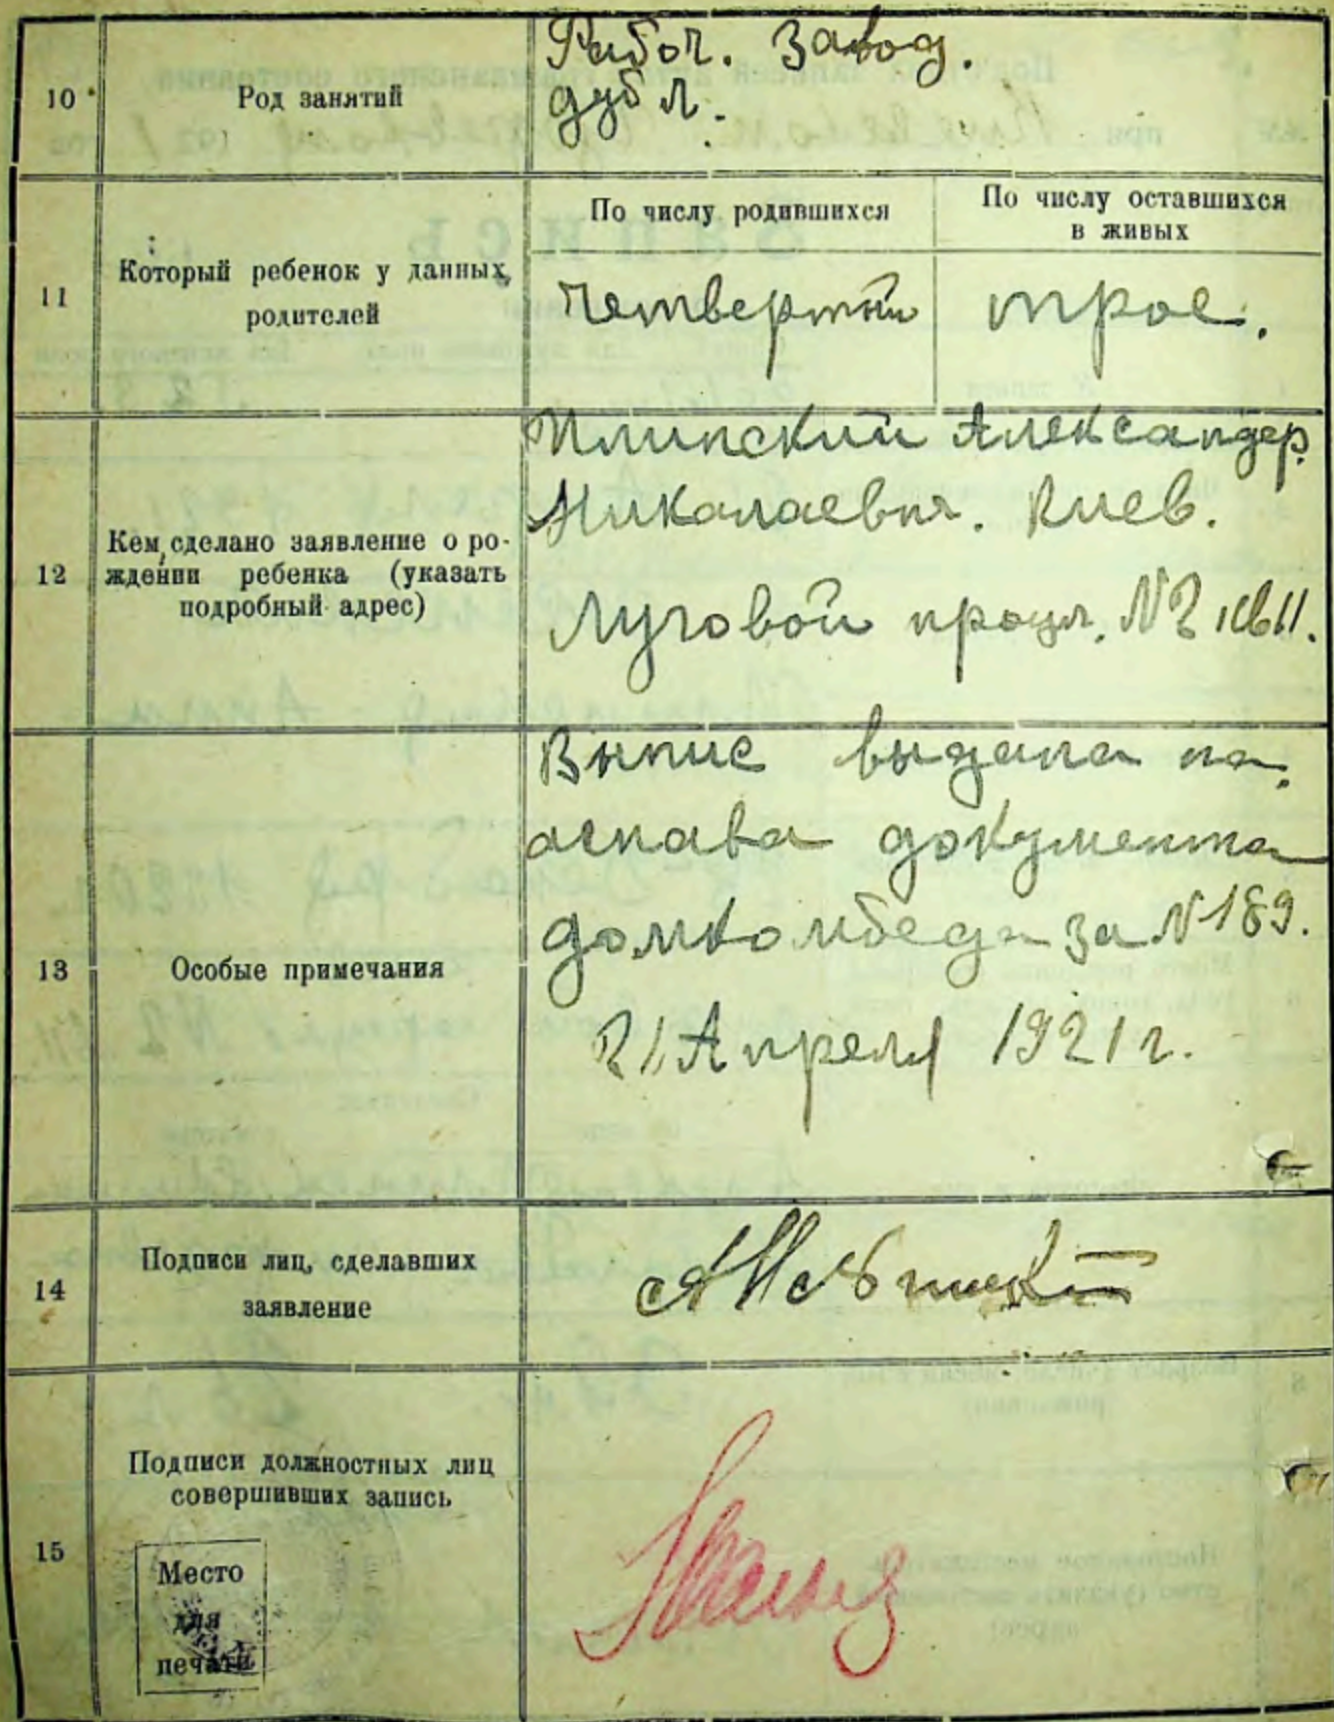 10
Род занятий
Рабоч. Завод.
дубл.
11
Который ребенок у данных
родителей
По числу родившихся
По числу оставшихся
в живых
Четвертый
трое.
12
Кем сделано заявление о ро-
ждении ребенка (указать
подробный адрес)
Александер
Николаевич. Киев.
Луговой проул. №2 кв 11.
13
Особые примечания
Выпис выдана на
аснава документа
домкомбеда за №189.
21 Апреля 1921 г.
14
Подписи лиц, сделавших
заявление
15
Подписи должностных лиц
совершивших запись
Место
для
печати